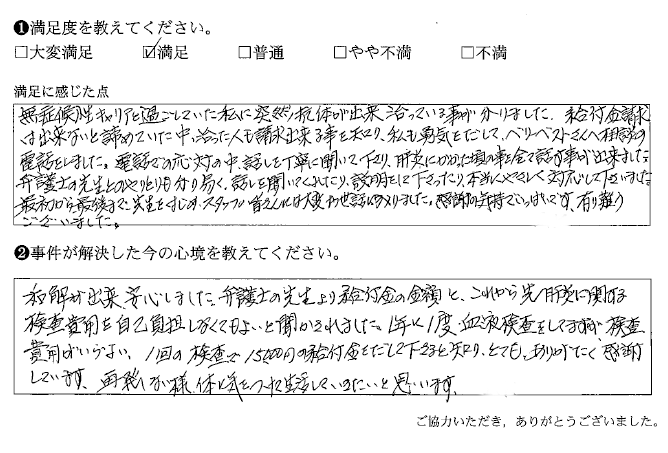 ❶満足度を教えてください。
□大変満足 ☑満足 □普通 □やや不満 □不満
満足に感じた点
無症候性キャリアと過ごしていた私に突然抗体が出来、治っている事が分りました。給付金請求
は出来ないと諦めていた中、治った人も請求出来る事を知り、私も勇気をだして、ベリーベストさんへ相談の
電話をしました。電話での応対の中、話しを丁寧に聞いて下さり、肝炎にかかった頃の事を全て話す事が出来ました。
弁護士の先生とのやりとりも分り易く、話しを聞いてくれたり、説明をして下さったり、本当にやさしく対応して下さいました。
最初から最後まで先生をはじめ、スタッフの皆さんには大変お世話になりました。感謝の気持でいっぱいです。有難う
ございました。
❷事件が解決した今の心境を教えてください。
和解が出来、安心しました。弁護士の先生より給付金の金額と、これから先、肝炎に関する
検査費用を自己負担しなくてもよいと聞かされました。1年に1度、血液検査をしてますが、検査
費用がいらない、1回の検査で15000円の給付金をだして下さると知り、とても、ありがたく感謝
しています。再発しない様、体に気をつけて生活していきたいと思います。
ご協力いただき，ありがとうございました。